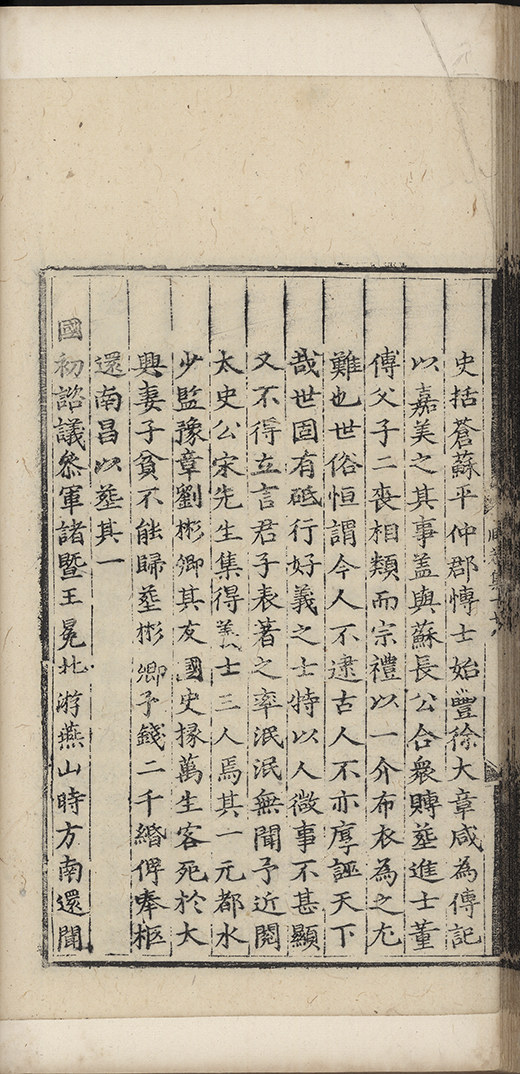 史括蒼蘇平仲郡慱士始豐徐大章咸為傳記
以嘉美之其事盖與蘇長公合衆賻塟進士董
傳父子二喪相類而宗禮以一介布衣為之尤
難也世俗恒謂今人不逮古人不亦厚誣天下
哉世固有砥行好義之士特以人微事不甚顯
又不得立言君子表著之率泯泯無聞予近閱
太史公宋先生集得義士三人焉其一元都水
少監豫章劉彬卿其友國史掾萬生客死於大
興妻子貧不能歸塟彬卿予錢二千緡俾奉柩
還南昌以塟其一
國初諮議叅軍諸暨王冕北游燕山時方南還聞